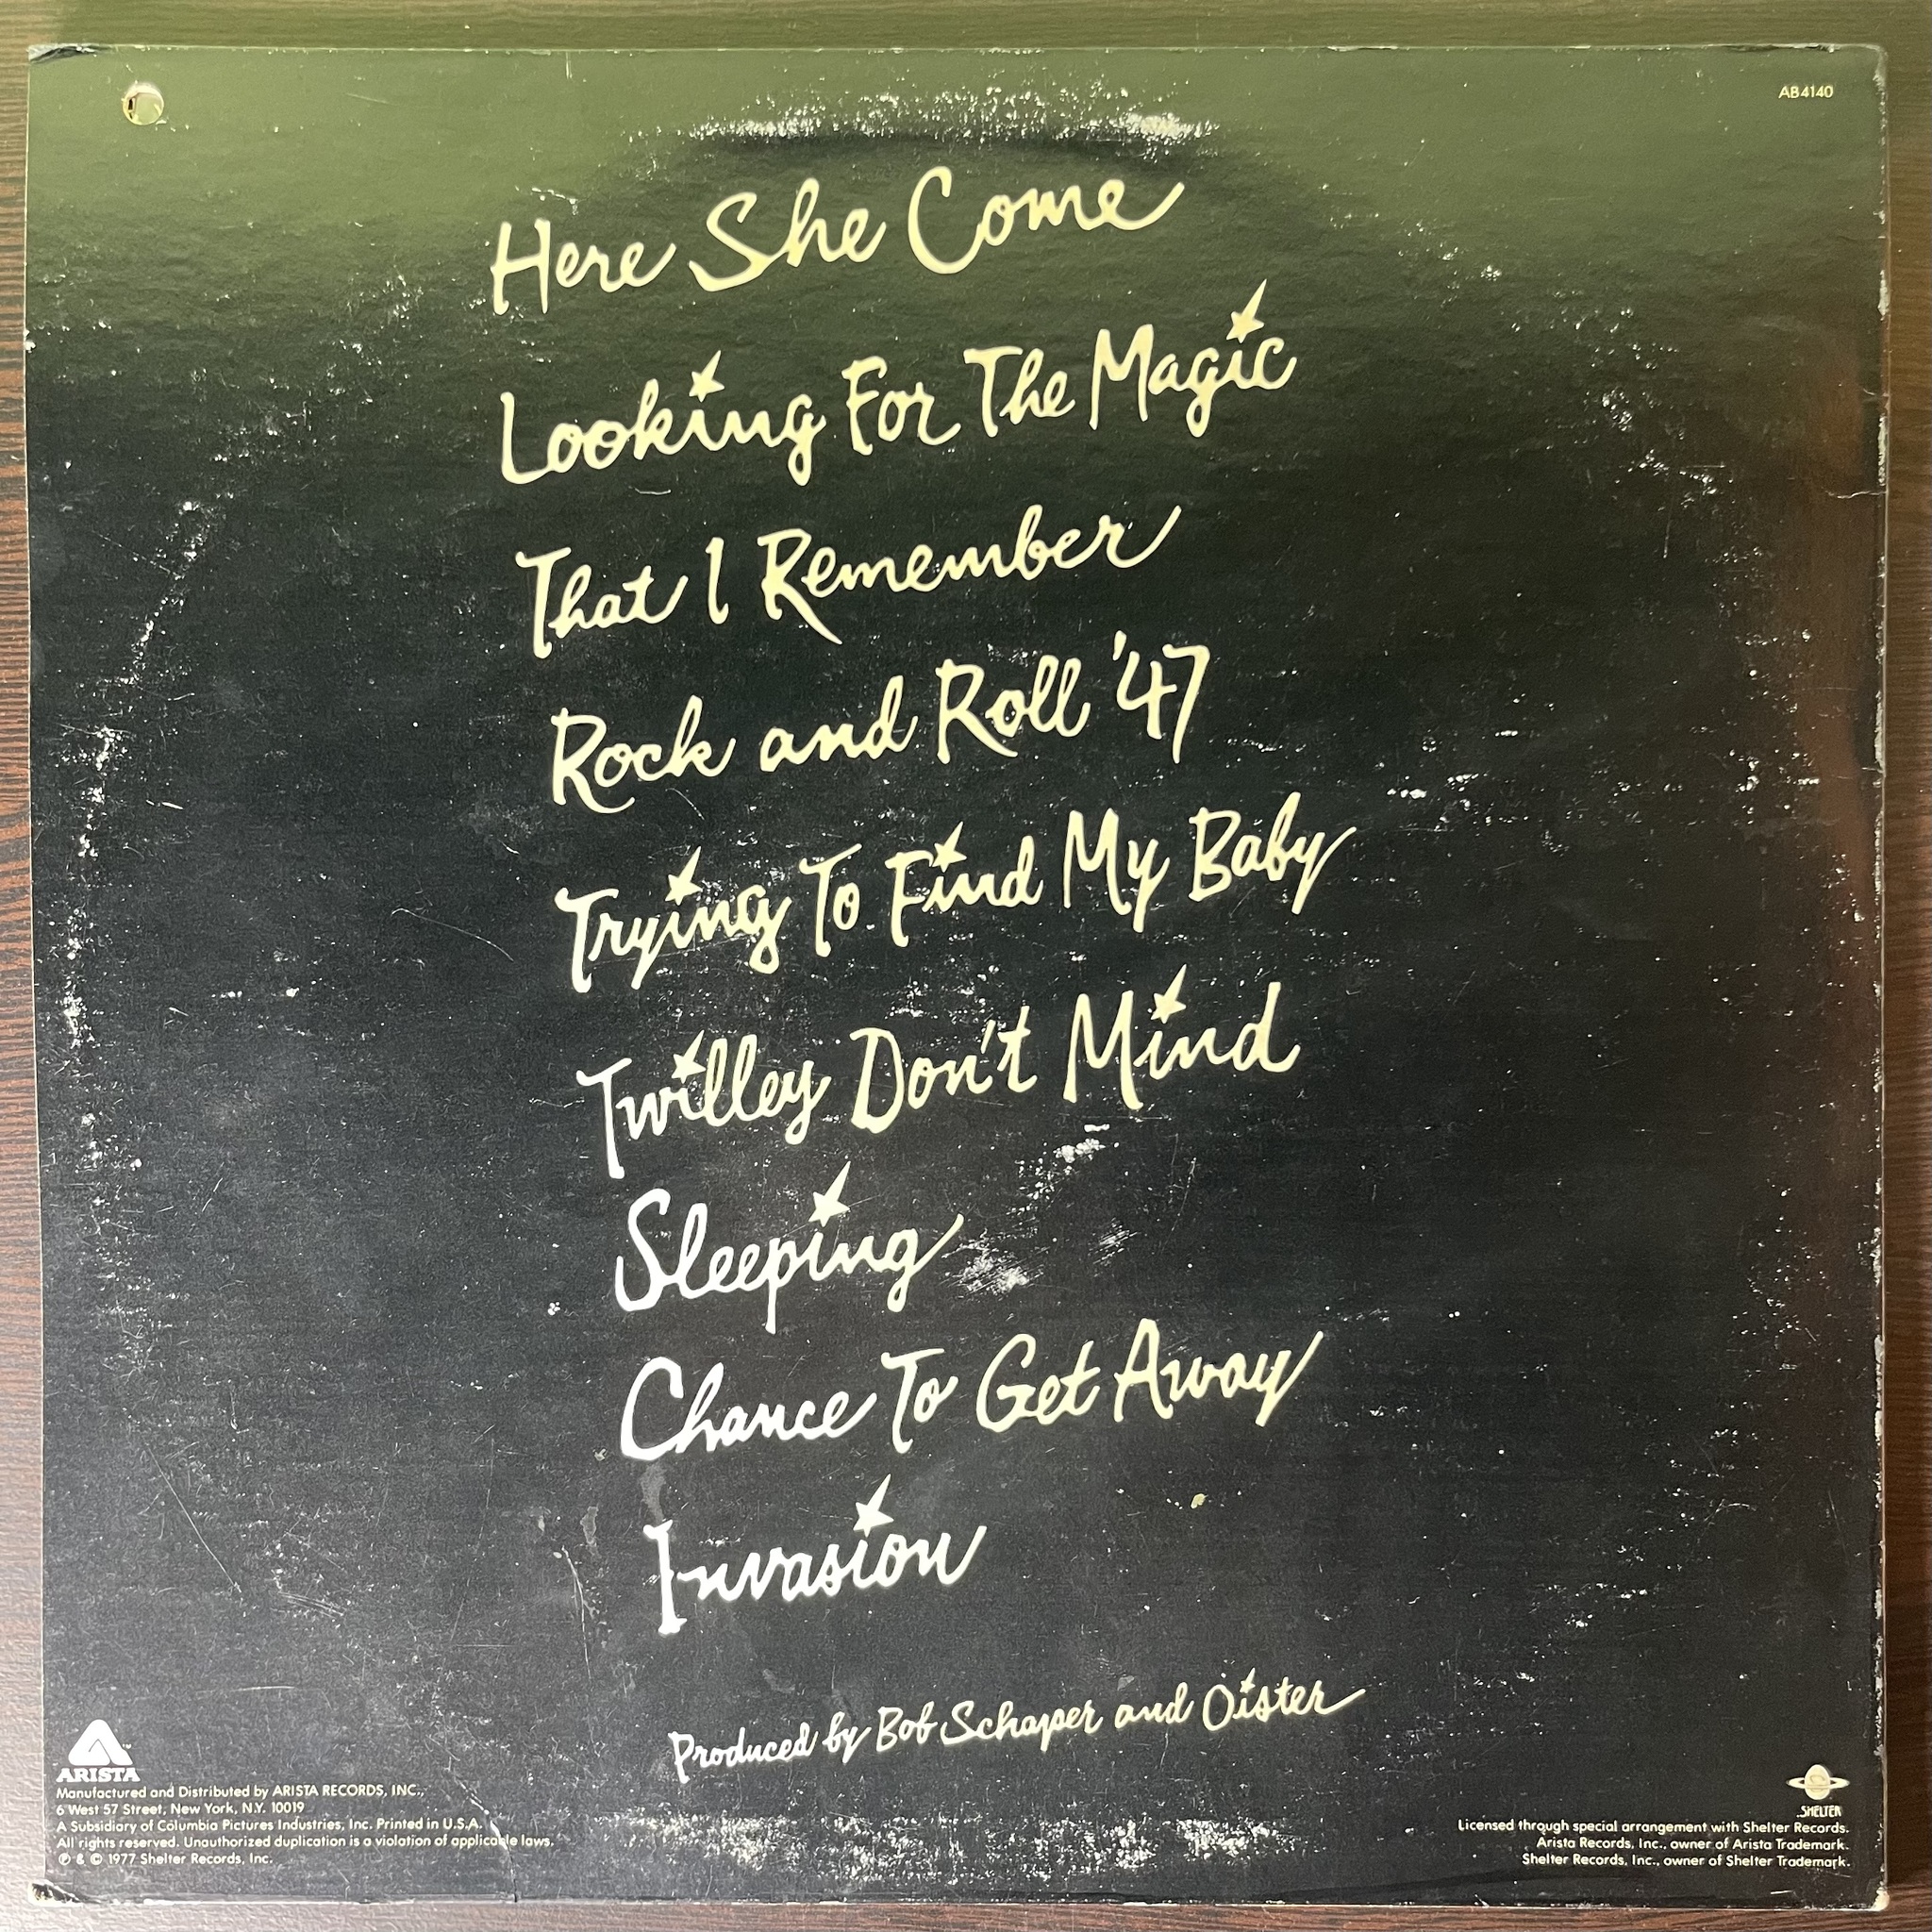 AB4140
Here She Come
Looking For The Magic
That I Remember
Rock and Roll '47
Trying To Find My Baby
Twilley Don't Mind
Sleeping
Chance To Get Away
Invasion
Produced by Bob Schaper and Oister
ARISTA™
Manufactured and Distributed by ARISTA RECORDS, INC.,
6 West 57 Street, New York, N.Y. 10019
A Subsidiary of Columbia Pictures Industries, Inc. Printed in U.S.A.
All rights reserved. Unauthorized duplication is a violation of applicable laws.
℗ & © 1977 Shelter Records, Inc.
SHELTER
Licensed through special arrangement with Shelter Records.
Arista Records, Inc., owner of Arista Trademark.
Shelter Records, Inc., owner of Shelter Trademark.